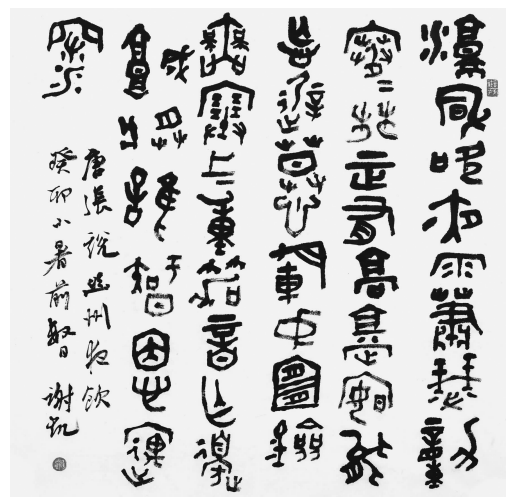 涼風吹夜雨蕭瑟動
寒林正有高堂宴能
忘遲暮心軍中宜劍
舞塞上重笳音不作邊
城將誰知恩遇
深
唐張說幽州夜飲
癸卯小暑前數日謝凱